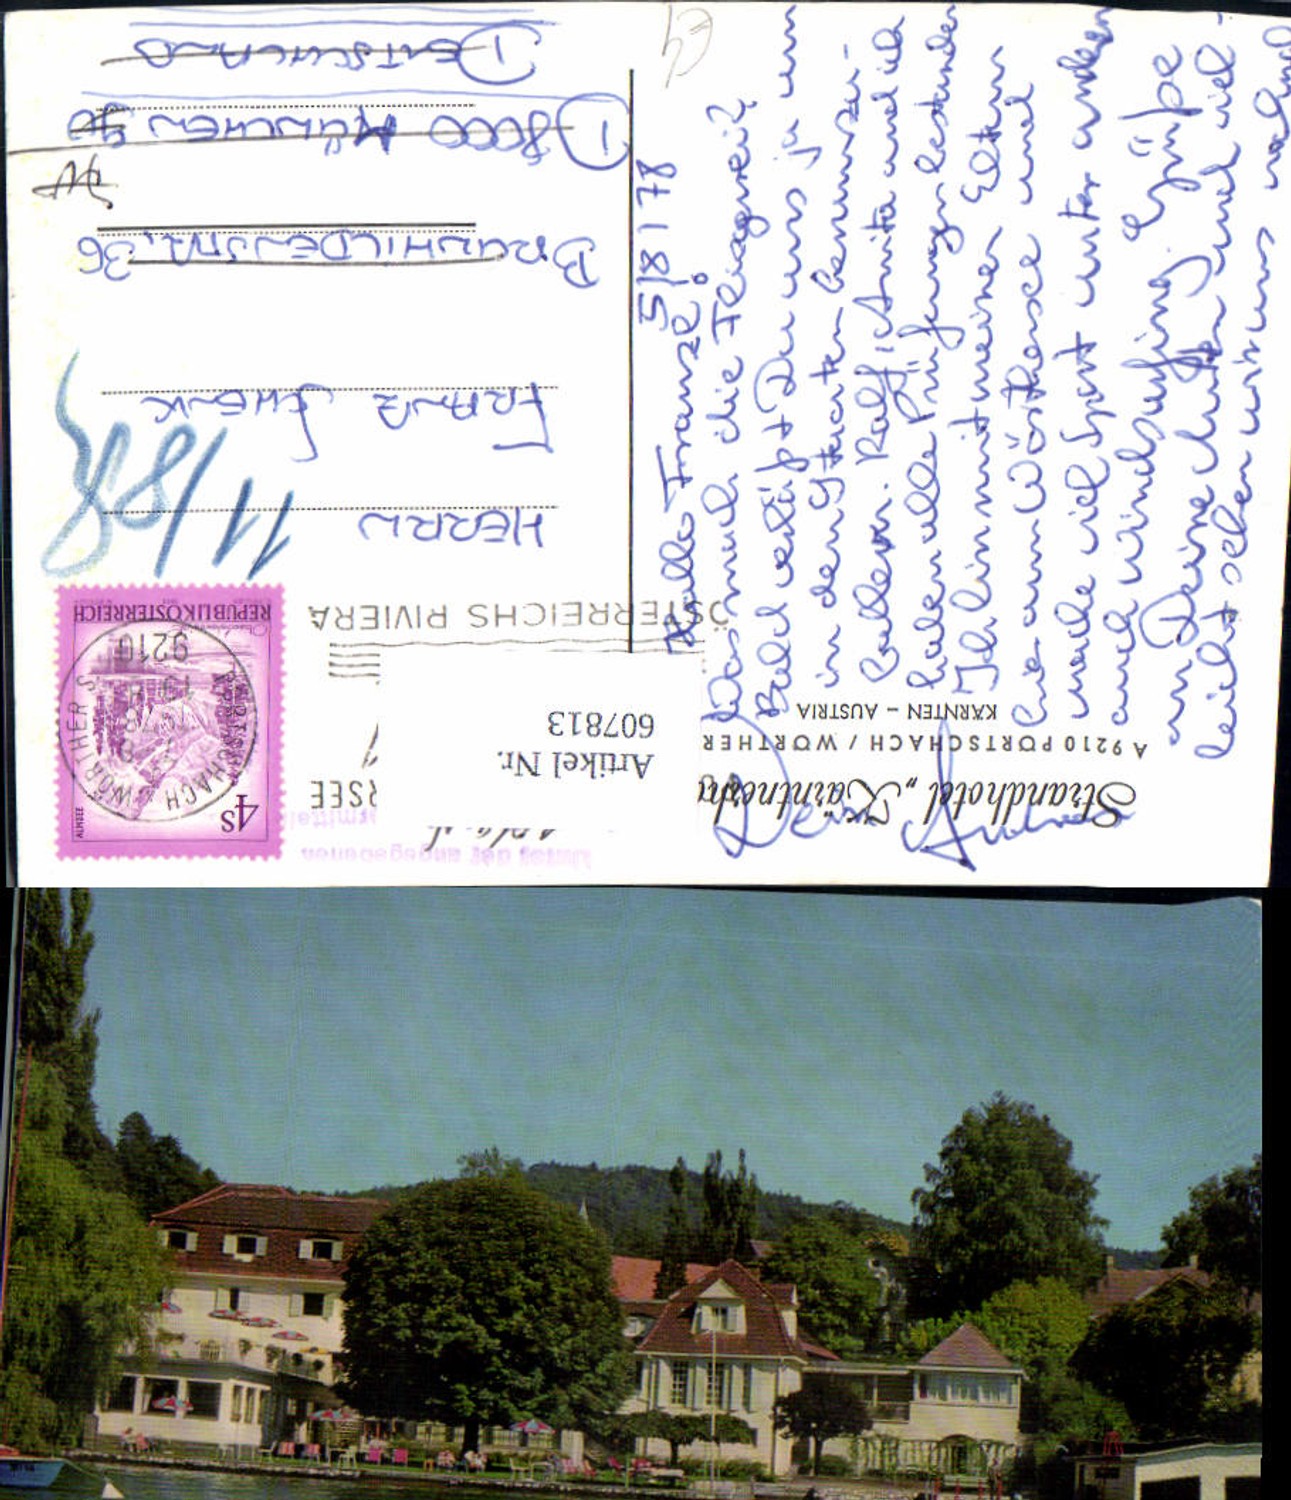 Strandhotel „Kärntnerhof
A 9210 PÖRTSCHACH / WÖRTHER
KÄRNTEN – AUSTRIA
Artikel Nr.
607813
RSEE
ÖSTERREICHS RIVIERA
4S
ALMSEE
REPUBLIK ÖSTERREICH
9210
PÖRTSCHACH
WÖRTHER S
Unter der angegebenen
11/8
HERRN
FRANZ SCHENK
BRUNHILDENSTR. 36
D 8000 MÜNCHEN
D DEUTSCHLAND
5/8/78
Hallo Franzl!
Was macht die Fliegerei?
Bald verläßt Du uns ja um
in den Staaten herumzu-
Ralf, Anita und ich
haben alle Prüfungen bestanden
Ich bin mit meinen Eltern
hier am Wörthersee und
mache viel Sport unter anderem
auch Windsurfing. Grüße
an Deine Mutter und viel-
leicht sehen wir uns noch mal
Dein Andreas